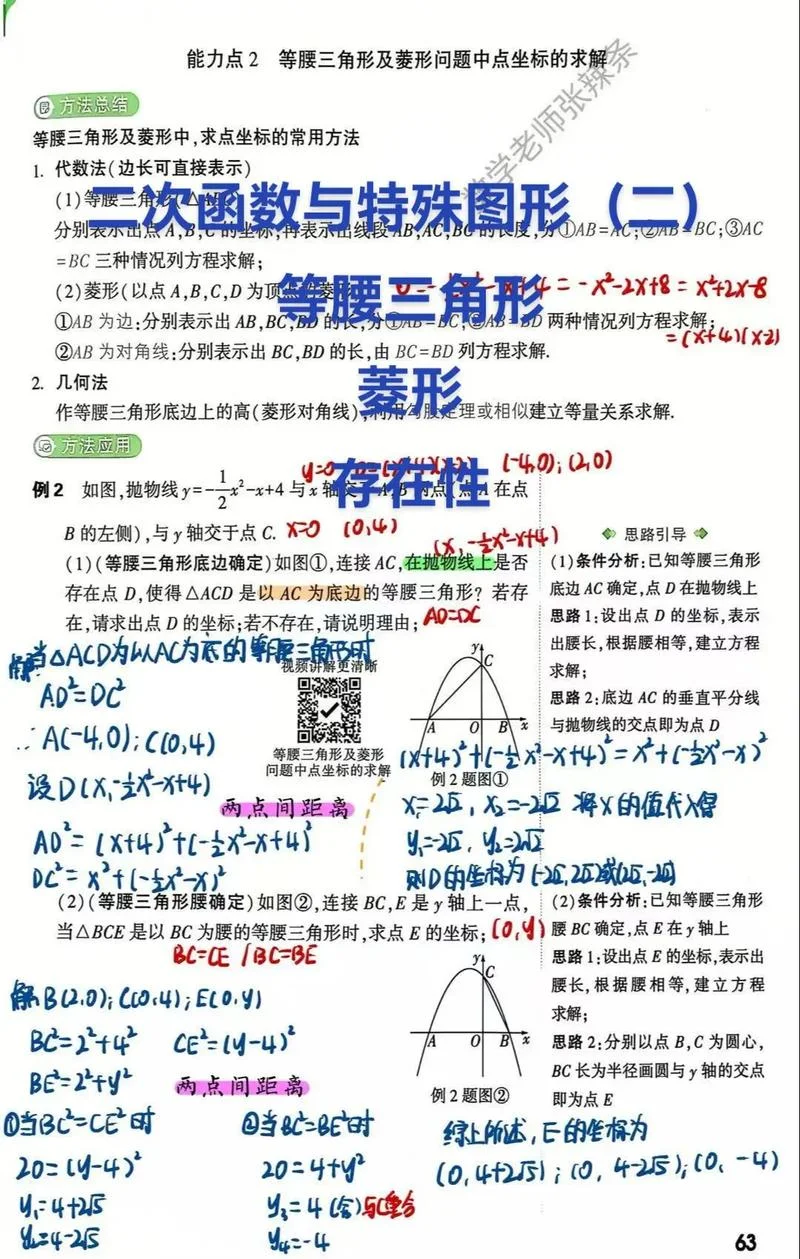 能力点2 等腰三角形及菱形问题中点坐标的求解
学老师张辣条
方法总结
等腰三角形及菱形中,求点坐标的常用方法
1. 代数法(边长可直接表示)
(1)等腰三角形(△ABC)
二次函数与特殊图形（二）
分别表示出点A,B,C的坐标,再表示出线段AB,AC,BC的长度,分①AB=AC;②AB=BC;③AC
=BC三种情况列方程求解;
(2)菱形(以点A,B,C,D为顶点的菱形)
等腰三角形
= -x²-2x+8 = x²+2x-8
①AB为边:分别表示出AB,BC,BD的长,分①AB=BC;②AB=BD两种情况列方程求解;
=(x+4)(x-2)
②AB为对角线:分别表示出BC,BD的长,由BC=BD列方程求解.
2. 几何法
菱形
作等腰三角形底边上的高(菱形对角线),利用勾股定理或相似建立等量关系求解.
方法应用
存在性
y=0 (-4,0);(2,0)
例2 如图,抛物线y=-1/2x²-x+4与x轴交于A,B两点(点A在点
B的左侧),与y轴交于点C. x=0 (0,4)
(x,-1/2x²-x+4)
思路引导
(1)(等腰三角形底边确定)如图①,连接AC,在抛物线上是否
存在点D,使得△ACD是以AC为底边的等腰三角形？若存
在,请求出点D的坐标;若不存在,请说明理由; AD=DC
(1)条件分析:已知等腰三角形
底边AC确定,点D在抛物线上
思路1:设出点D的坐标,表示
出腰长,根据腰相等,建立方程
求解;
思路2:底边AC的垂直平分线
与抛物线的交点即为点D
解:当△ACD为以AC为底的等腰三角形时
AD²=DC²
∴A(-4,0);C(0,4)
设D(x,-1/2x²-x+4)
两点间距离
AD²=(x+4)²+(-1/2x²-x+4)²
DC²=x²+(-1/2x²-x)²
视频讲解更清晰
等腰三角形及菱形
问题中点坐标的求解
y
C
A O B x
例2题图①
(x+4)²+(-1/2x²-x+4)²=x²+(-1/2x²-x)²
x₁=2√2, x₂=-2√2 将x的值代入得
y₁=-2√2, y₂=2√2
则D的坐标为(-2√2,2√2)或(2√2,-2√2)
(2)(等腰三角形腰确定)如图②,连接BC,E是y轴上一点,
当△BCE是以BC为腰的等腰三角形时,求点E的坐标; (0,y)
BC=CE / BC=BE
(2)条件分析:已知等腰三角形
腰BC确定,点E在y轴上
思路1:设出点E的坐标,表示出
腰长,根据腰相等,建立方程
求解;
思路2:分别以点B,C为圆心,
BC长为半径画圆与y轴的交点
即为点E
y
C
A O B x
例2题图②
解B(2,0);C(0,4);E(0,y)
BC²=2²+4² CE²=(y-4)²
BE²=2²+y² 两点间距离
①当BC²=CE²时
20=(y-4)²
y₁=4+2√5
y₂=4-2√5
②当BC²=BE²时
20=4+y²
y₃=4(舍)与C重合
y₄=-4
综上所述,E的坐标为
(0,4+2√5);(0,4-2√5);(0,-4)
63